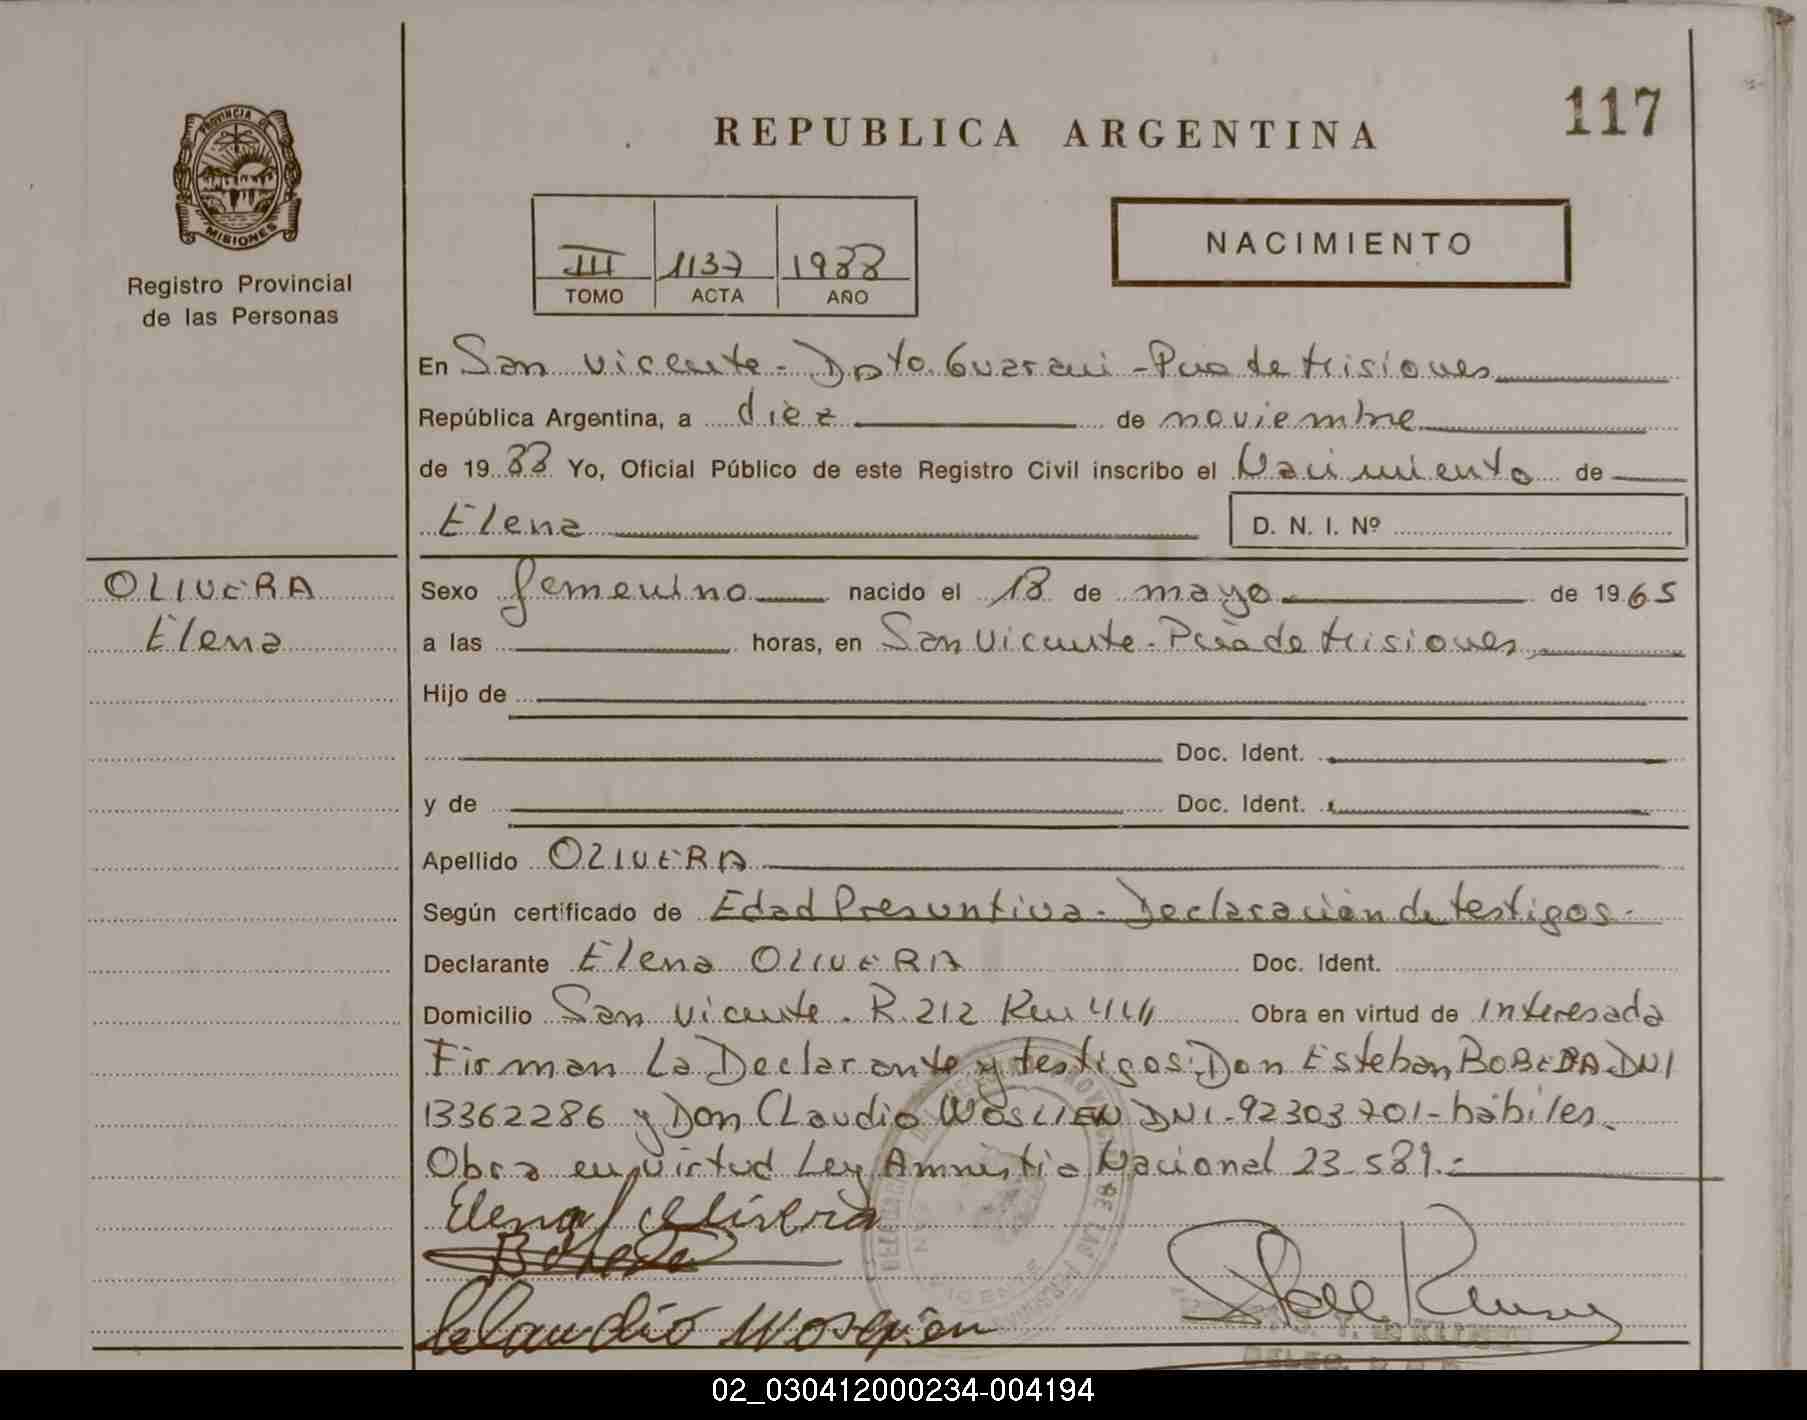 117
REPUBLICA ARGENTINA
PROVINCIA DE
MISIONES
NACIMIENTO
III 1137 1988
TOMO ACTA AÑO
Registro Provincial
de las Personas
En San Vicente - Dpto. Guarani - Pcia de Misiones
República Argentina, a diez de noviembre
de 1988 Yo, Oficial Público de este Registro Civil inscribo el Nacimiento de
Elena D. N. I. Nº
OLIVERA
Elena
Sexo femenino nacido el 18 de mayo de 1965
a las horas, en San Vicente - Pcia de Misiones
Hijo de
Doc. Ident.
y de Doc. Ident.
Apellido OLIVERA
Según certificado de Edad Presuntiva - Declaración de testigos -
Declarante Elena OLIVERA Doc. Ident.
Domicilio San Vicente. R. 212 Km Obra en virtud de Interesada
Firman La Declarante y testigos: Don Esteban DNI
13362286 y Don CLaudio DNI - 92303701 - hábiles.
Obra en virtud Ley Amnistia Nacional 23.589.-
Elena Olivera
Claudio
02_030412000234-004194